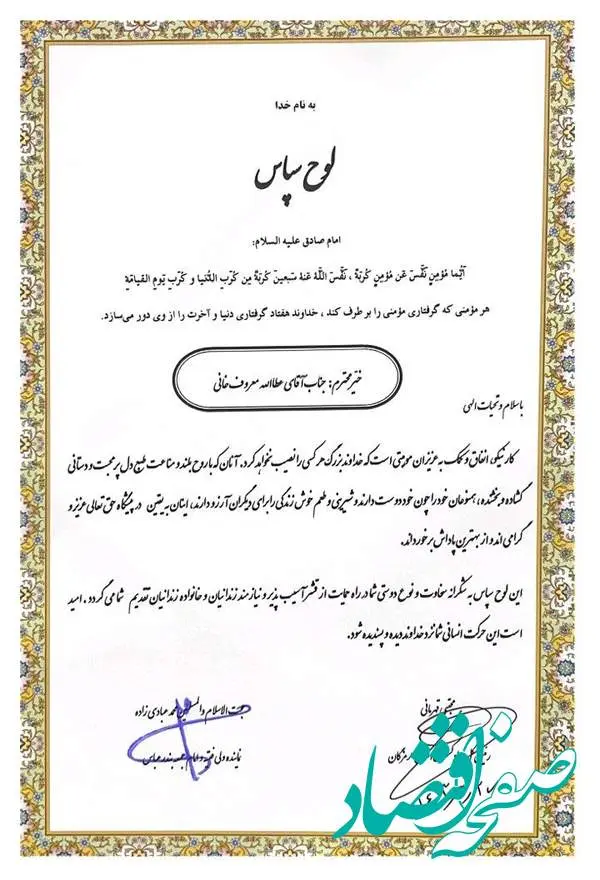 به نام خدا
لوح سپاس
امام صادق علیه السلام:
أیُّما مُؤمِنٍ نَفَّسَ عَن مُؤمِنٍ کُربَةً ، نَفَّسَ اللّٰهُ عَنهُ سَبعینَ کُربَةً مِن کُرَبِ الدُّنیا و کُرَبِ یَومِ القیامَةِ
هر مؤمنی که گرفتاری مؤمنی را بر طرف کند ، خداوند هفتاد گرفتاری دنیا و آخرت را از وی دور می‌سازد.
خیّر محترم: جناب آقای عطاالله معروف خانی
باسلام و تحیات الهی
کار نیکو، انفاق و کمک به عزیزان موهبتی است که خداوند بزرگ هر کسی را نصیب نخواهد کرد. آنان که با روح بلند و مناعت طبع دل پر محبت و دستانی
گشاده و بخشنده، همنوعان خود را چون خود دوست دارند و شیرینی و طعم خوش زندگی را برای دیگران آرزو دارند، اینان به یقین در پیشگاه حق تعالی عزیز و
گرامی اند و از بهترین پاداش برخوردارند.
این لوح سپاس به شکرانه سخاوت و نوع دوستی شما در راه حمایت از قشر آسیب پذیر و نیازمند زندانیان و خانواده زندانیان تقدیم شما می گردد. امید
است این حرکت انسانی شما نزد خداوند دیده و پسندیده شود.
مجتبی قهرمانی
حجت الاسلام والمسلمین محمد عبادی زاده
نماینده ولی فقیه و امام جمعه بندرعباس
صفحه اقتصاد